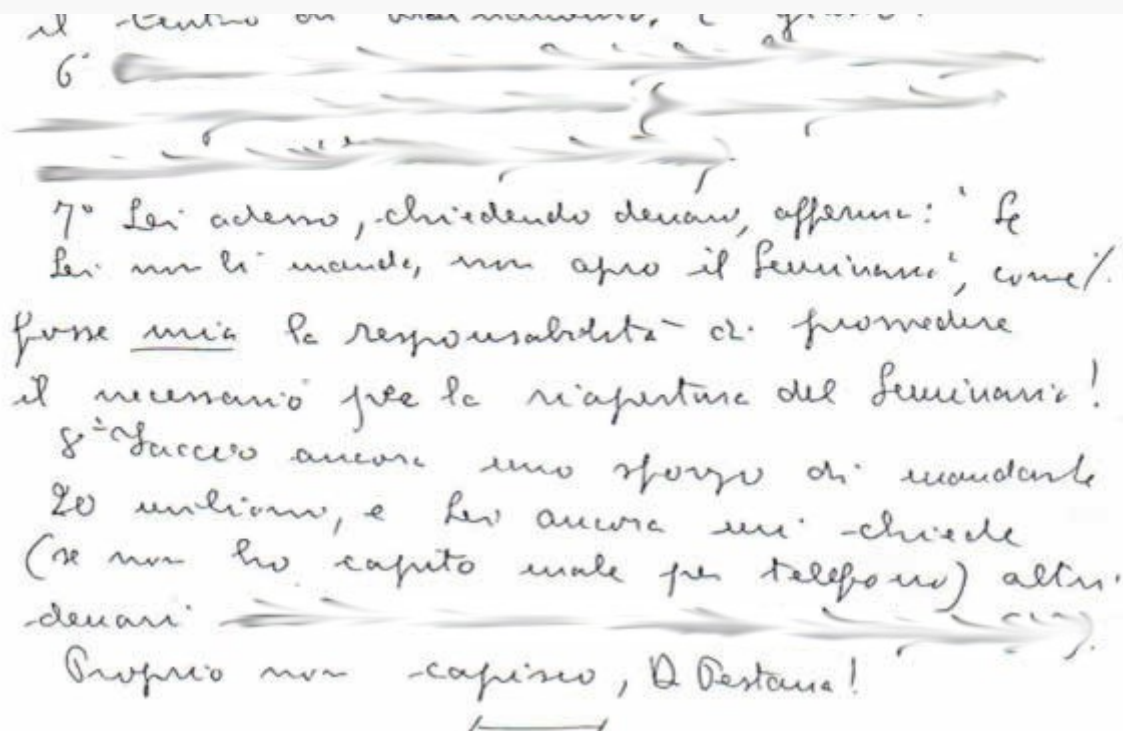 il centro di
6°
7° Lei adesso, chiedendo denaro, afferma: "Se
Lei non li manda, non apro il Seminario", come /.
fosse mia la responsabilità di provvedere
il necessario per la riapertura del Seminario!
8° Faccio ancora uno sforzo di mandarle
20 milioni, e Lei ancora mi chiede
(se non ho capito male per telefono) altri
denari
Proprio non capisco, D. Pestana!